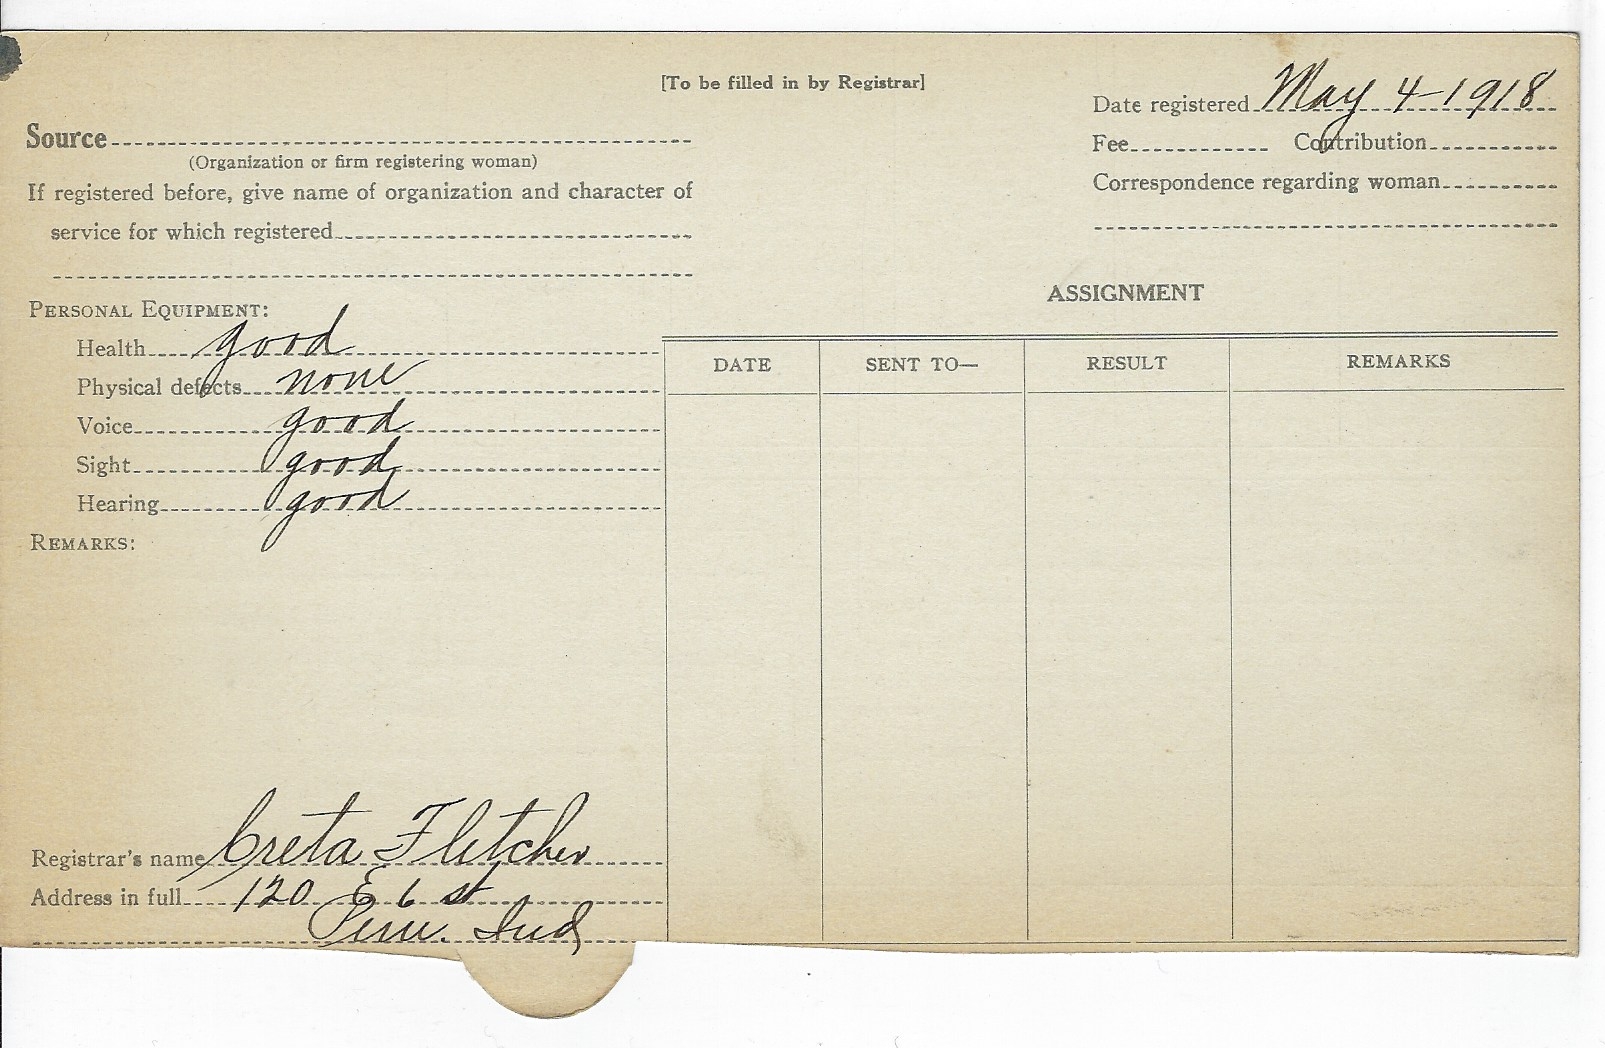 [To be filled in by Registrar]
Date registered May 4-1918
Source
(Organization or firm registering woman)
Fee Contribution
If registered before, give name of organization and character of
Correspondence regarding woman
service for which registered
ASSIGNMENT
PERSONAL EQUIPMENT:
Health good
Physical defects none
Voice good
Sight good
Hearing good
REMARKS:
DATE SENT TO— RESULT REMARKS
Registrar's name Creta Fletcher
Address in full 120 E 6 st
Peru. Ind